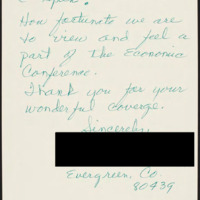 How fortunate we are
to view and feel a
part of the Economic
Conference.
Thank you for your
wonderful coverge.
Sincerely,
Evergreen, Co.
80439